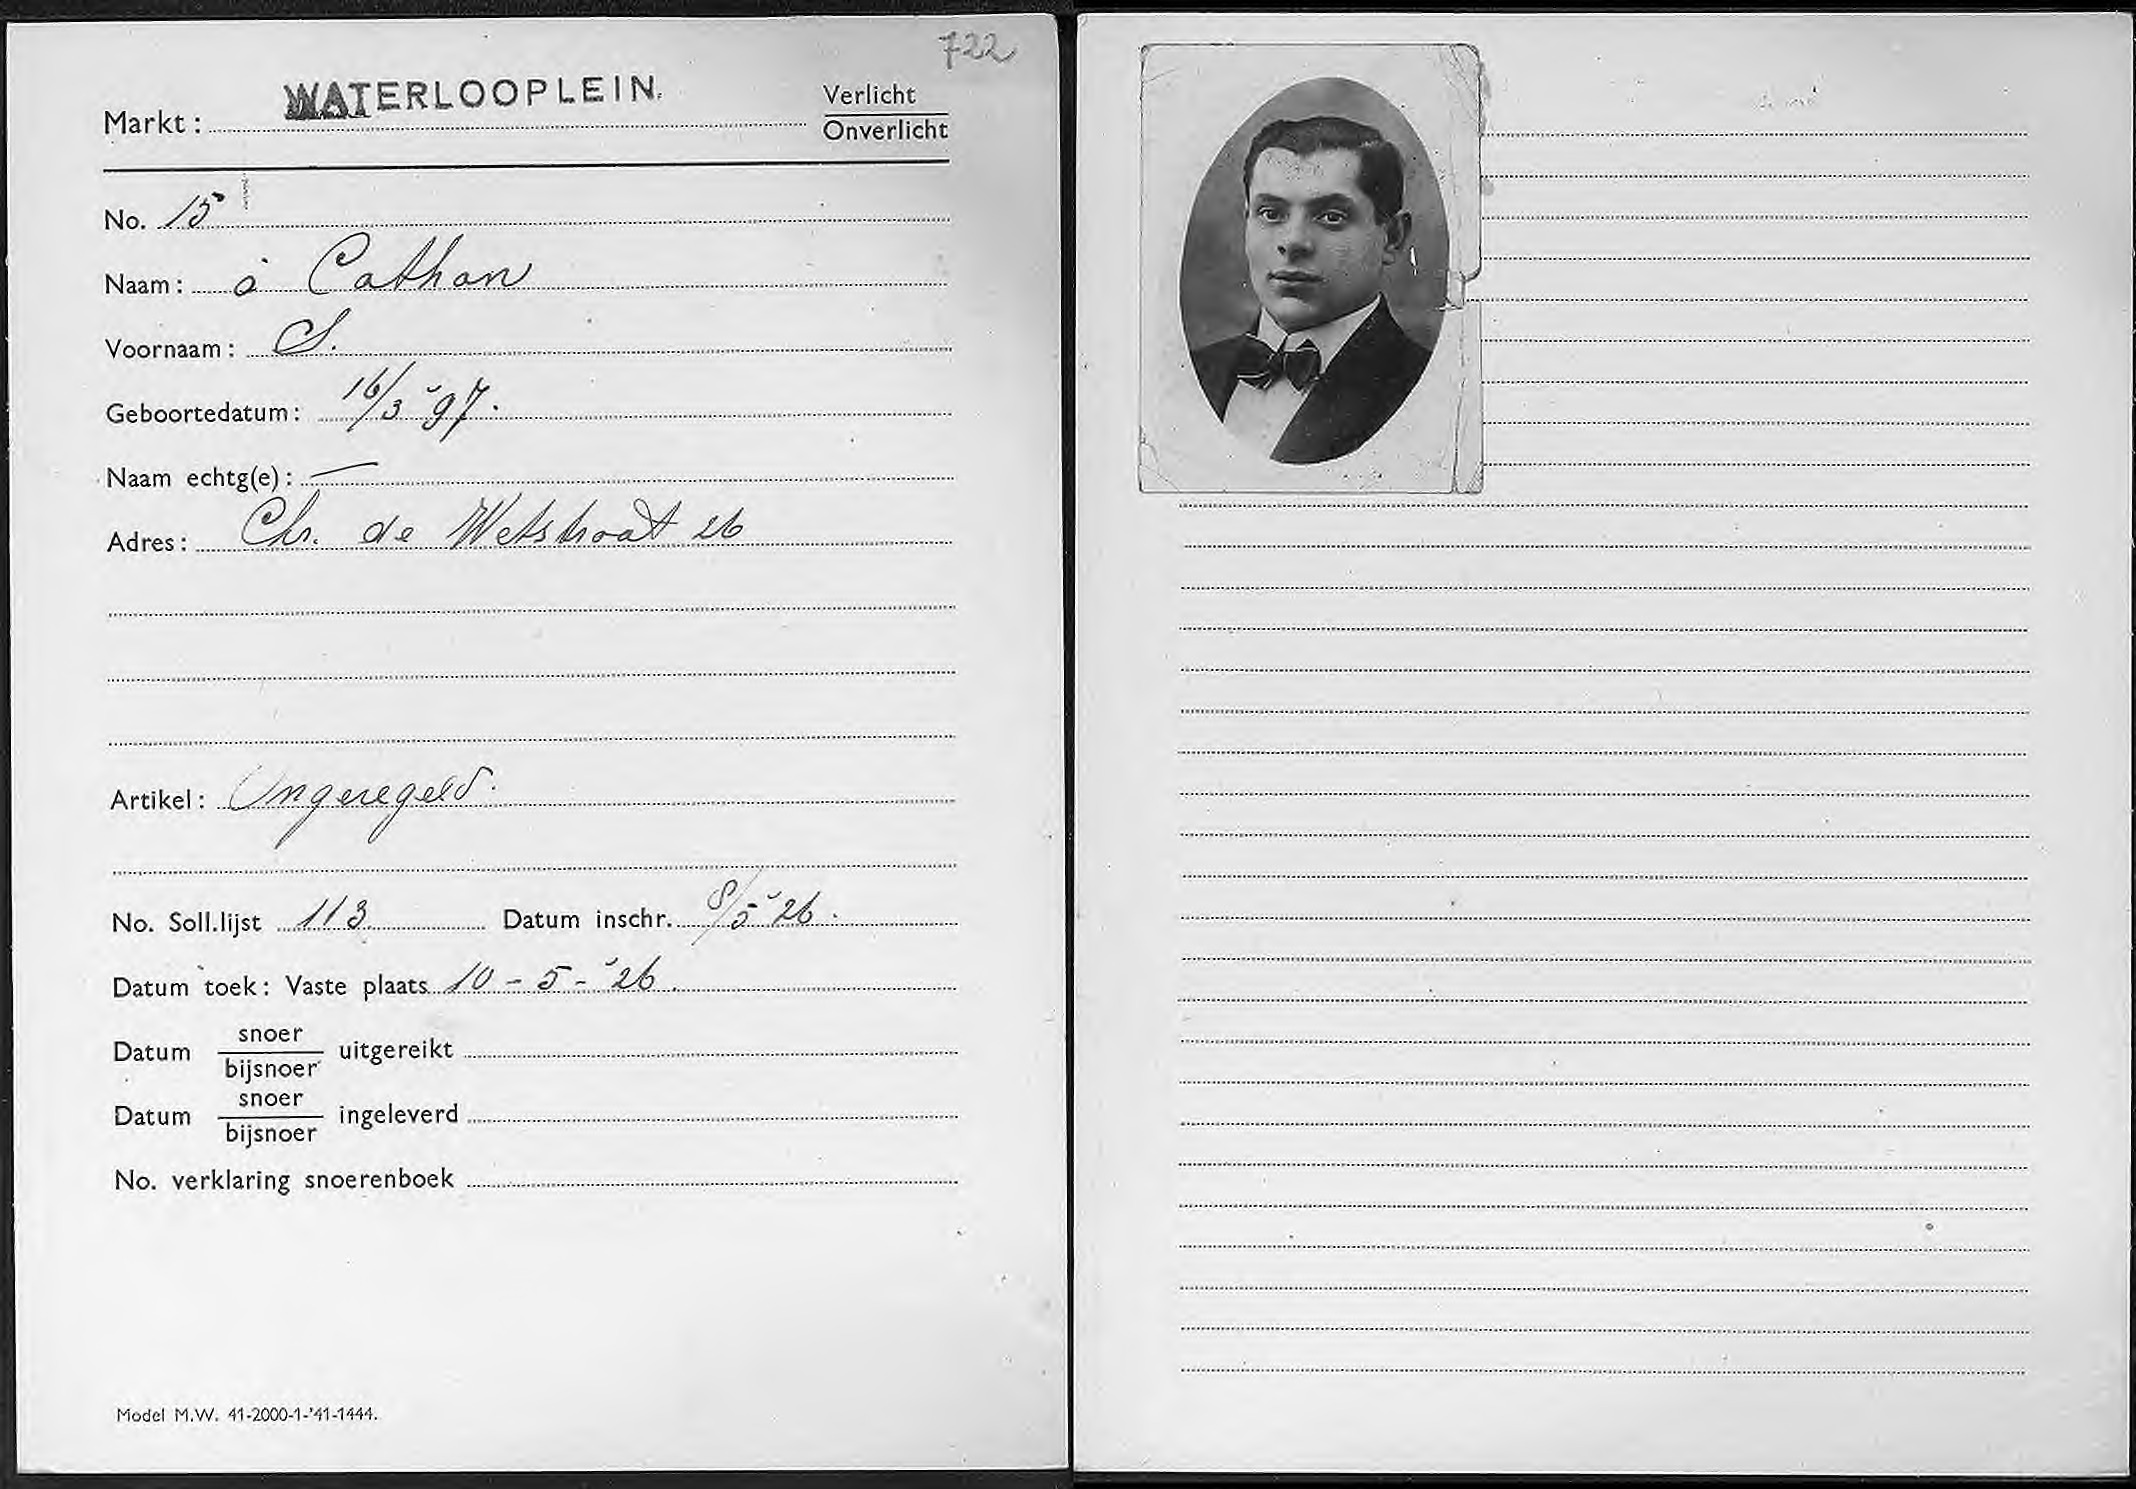 722
WATERLOOPLEIN.
Markt: Verlicht
Onverlicht
No. 15
Naam: à Cathan
Voornaam: S.
Geboortedatum: 16/3 '97.
Naam echtg(e): —
Adres: Chr. de Wetstraat 26
Artikel: Ongeregeld.
No. Soll.lijst 113 Datum inschr. 8/5 '26.
Datum toek: Vaste plaats 10 - 5 - '26.
Datum snoer/bijsnoer uitgereikt
Datum snoer/bijsnoer ingeleverd
No. verklaring snoerenboek
Model M.W. 41-2000-1-'41-1444.